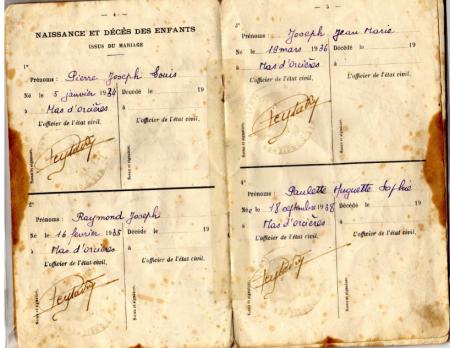 — 4 —
NAISSANCE ET DÉCÈS DES ENFANTS
ISSUS DU MARIAGE
1º
Prénoms : Pierre Joseph Louis
Né le 5 janvier 19 Décédé le 19
à Mas d'orcières à
L'officier de l'état civil, L'officier de l'état civil,
Sceau et signature. Sceau et signature.
2º
Prénoms : Raymond Joseph
Né le 16 février 1935 Décédé le 19
à Mas d'orcières à
L'officier de l'état civil, L'officier de l'état civil,
Sceau et signature. Sceau et signature.
— 5 —
3º
Prénoms : Joseph Jean Marie
Né le 19 mars 1936 Décédé le 19
à Mas d'orcières à
L'officier de l'état civil, L'officier de l'état civil,
Sceau et signature. Sceau et signature.
4º
Prénoms : Paulette Huguette Sophie
Née le 18 septembre 1938 Décédé le 19
à Mas d'orcières à
L'officier de l'état civil, L'officier de l'état civil,
Sceau et signature. Sceau et signature.